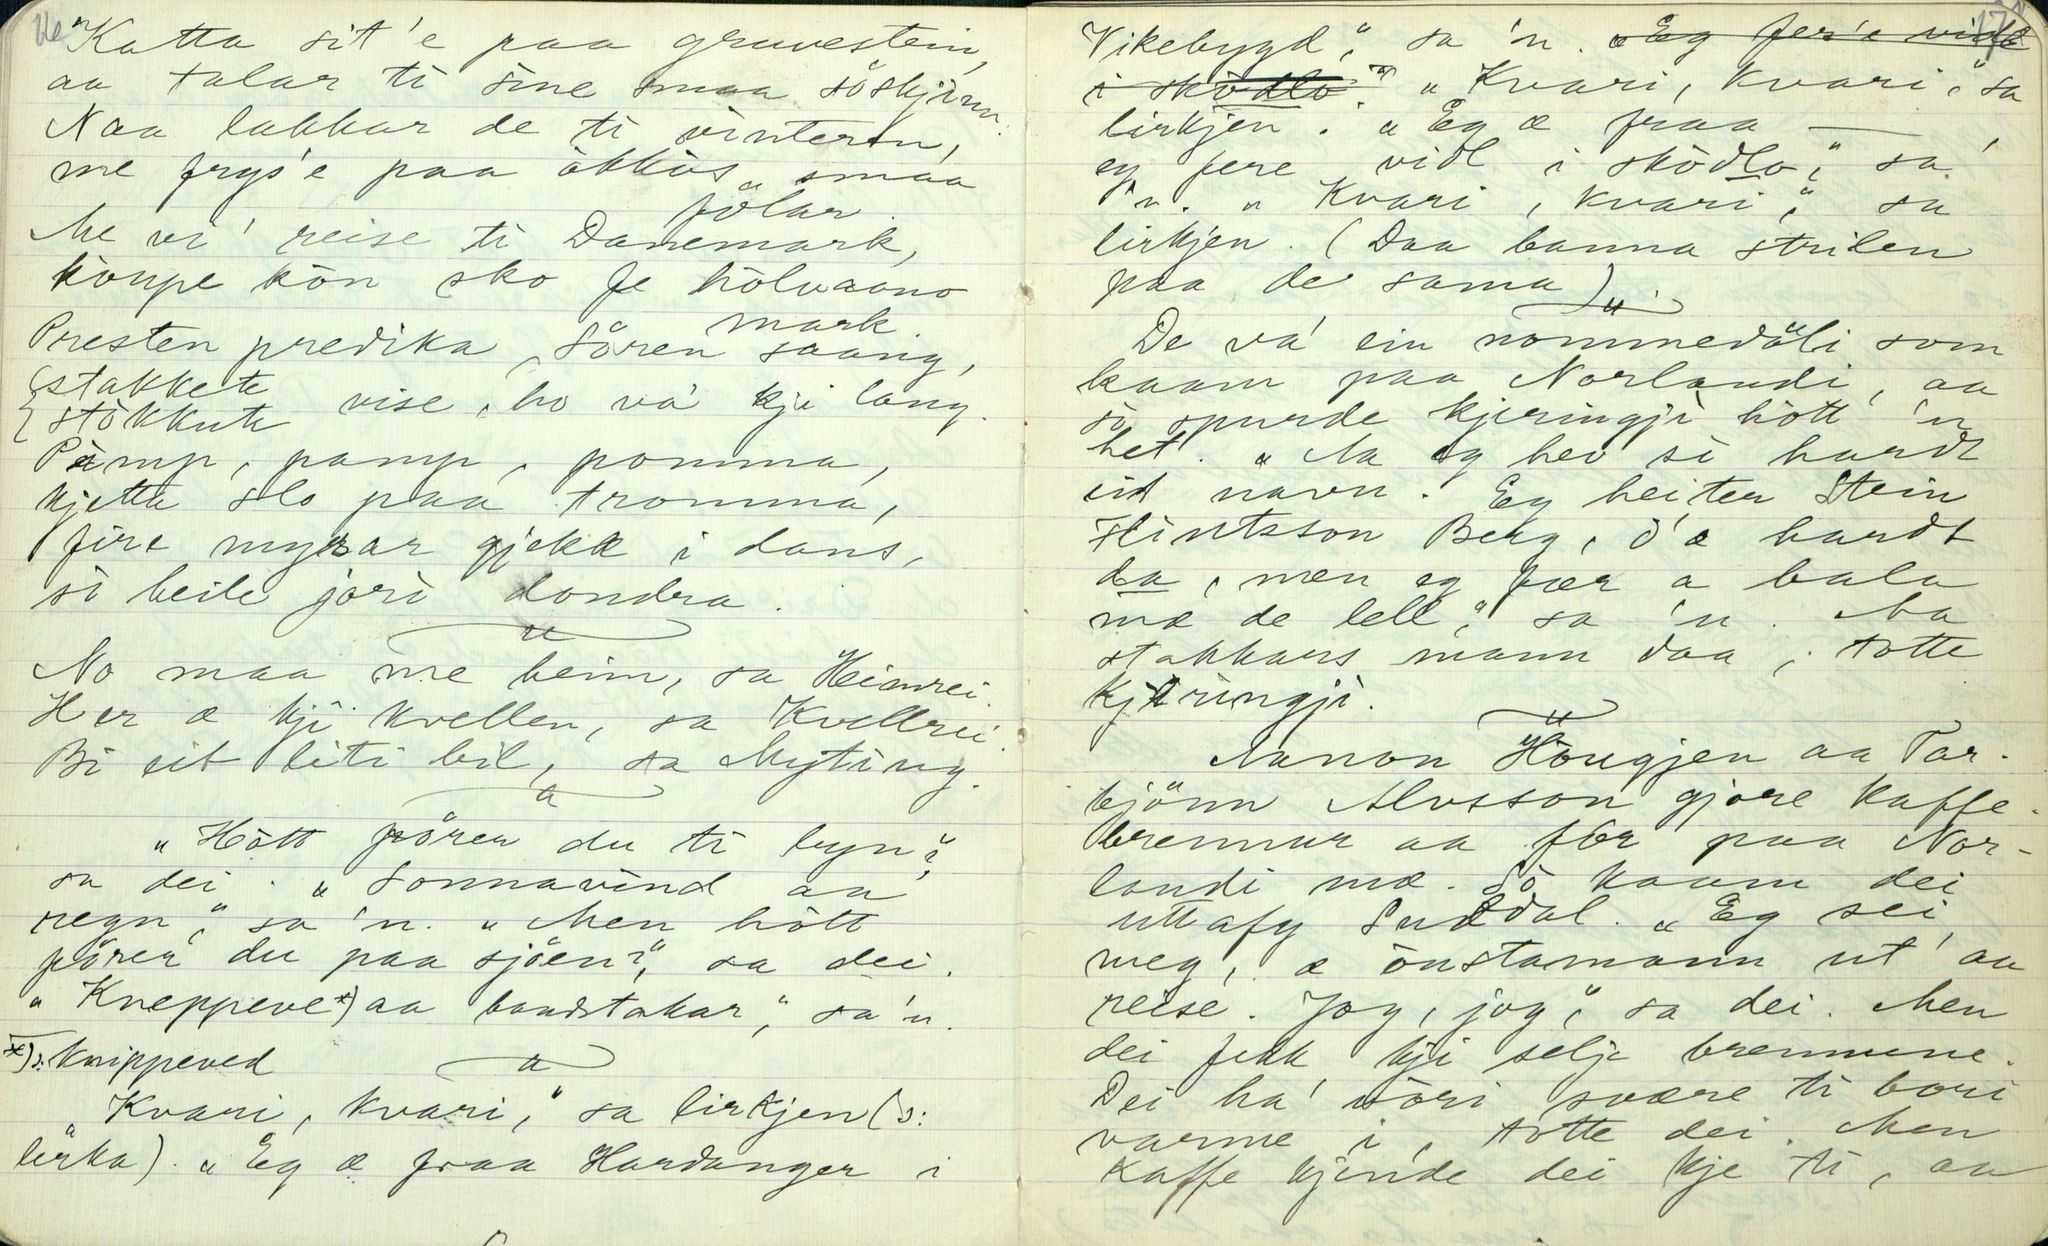 16
"Katta sit'e paa gruvestein,
aa talar ti sine smaa söskjinn:
Naa lakkar de ti vinteren,
me frys'e paa åkkås smaa
fötar.
Me vi' reise ti Danemark,
köupe kön sko fe hölvaono
mark.
Presten predika, Sören saang,
stakkete
stökkute vise, ho va' kji lang.
Pamp, pamp, pomma,
kjetta slo paa tromma,
fire mysar gjekk i dans,
så heile jori dondra.
"
No maa me heim, sa Heimrei
Her æ kji kvellen, sa Kvellrei.
Bi eit liti bil, sa Myting.
"
"Hött förer du ti byn?"
sa dei. "Sonnavind aa
regn," sa 'n. "Men hött
förer du paa sjöen?", sa dei.
"Kneppeve*) aa bandstakar," sa 'n.
*) ɔ: Knippeved
"
"Kvari, kvari," sa lirkjen (ɔ:
lerka). "Eg æ fraa Hardanger i
17
Vikebygd," sa 'n. "Eg fer'e vidt
i skodlo." "Kvari, kvari," sa
lirkjen. "Eg æ fraa —,
eg fere vidt i sködlo," sa
'n. "Kvari, kvari," sa
lirkjen. (Daa banna strilen
paa de sama).
"
De va' ein nommedöli som
kaam paa Norlandi, aa
så spurde kjeringji hött 'n
het. "Aa eg hev så hardt
eit navn. Eg heiter Stein
Flintsson Berg, d'æ hardt
da, men eg fær a bala
mæ de lell," sa 'n. Aa
stakkars mann daa, totte
kjeringji.
"
Aanon Haugjen aa Tar-
bjönn Alvsson gjore kaffe-
brennur aa for paa Nor-
landi mæ. Så kaam dei
utt afy Suldal. "Eg sei
meg, æ önstamann ut aa
reise. Jog, jog," sa dei. Men
dei fekk kji selja brennune.
Dei ha' vöri svære ti bori
varme i, totte dei. Men
kaffe kjende dei kje ti, aa